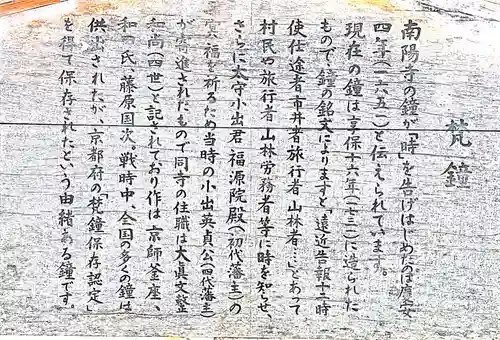 梵鐘
南陽寺の鐘が「時」を告げはじめたのは慶安
四年(一六五一)と伝えられています。
現在の鐘は享保十六年(一七三一)に造られた
もので、鐘の銘文によりますと、「遠近告報十二時
使仕途者市井者旅行者山林者……」とあって
村民や旅行者、山林労務者等に時を知らせ、
さらに太守小出君(福源院殿)(初代藩主)の
冥福を祈るため当時の小出英貞公(四代藩主)
が寄進されたもので同寺の住職は大眞文整
和尚(四世)と記されており作は京師釜座、
和田氏、藤原国次。戦時中、全国の多くの鐘は
供出されたが、京都府の「梵鐘保存認定」
を得て保存されたという由緒ある鐘です。